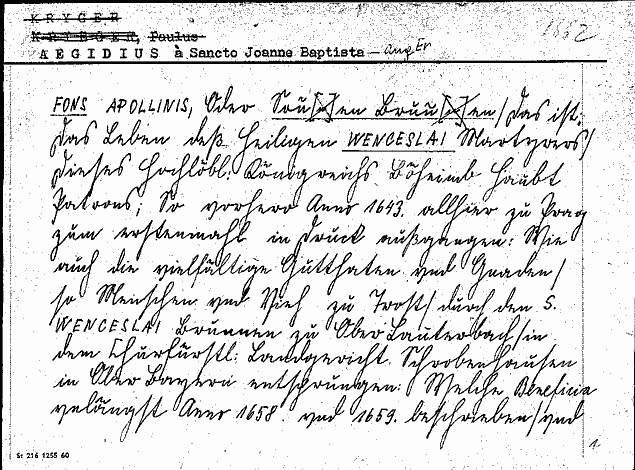 KRYGER
KRYGER, Paulus
1662
AEGIDIUS à Sancto Joanne Baptista – AugEr
FONS APOLLINIS, Oder Sou[n]en Bruu[n]en/ Das ist:
Das Leben deß heiligen WENCESLAI Martyrers/
dieses hochlöbl: Königreichs Böheimb haubt
Patrons; So vorhero Anno 1643. allhier zu Prag
zum erstenmahl in Druck außgangen: Wie
auch die vielfältige Gutthaten vnd Gnaden/
so Menschen vnd Vieh zu Trost/ durch den S.
WENCESLAI Brunnen zu OberLauterbach/ in
dem Churfürstl: Landgericht Schrobenhausen
in Ober Bayern entsprungen: Welche Beneficia
vnlängst Anno 1658. vnd 1659. beschrieben/ vnd
1.
St 216 1255 60